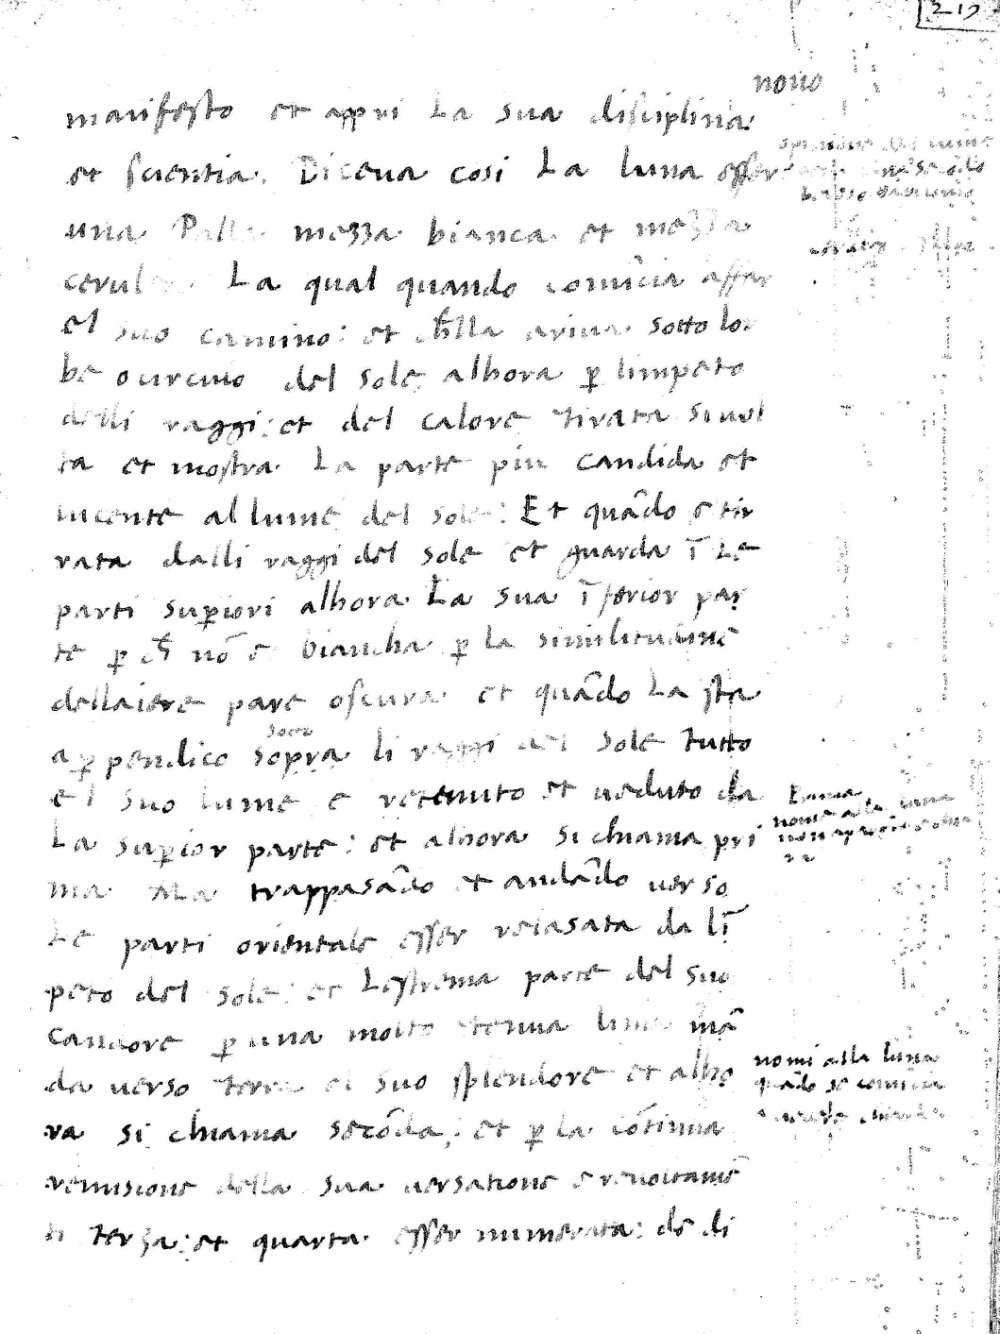 219
nono
manifesto et appri La sua disciplina
et scientia. Diceua cosi La luna esser
una Palla mezza bianca et mezza
cerulea La qual quando comīcia affar
el suo camino: et ch̄lla ariua sotto lor
be o circulo del sole alhora p̱ limpeto
delli raggi: et del calore tirata siuol
ta et mostra La parte piu candida et
lucente al lume del sole: Et quādo e tir
rata dalli raggi del sole et guarda ī Le
parti sup̱iori alhora La sua īferior par
te p̱ ch̄ nō e biancha p̱ la similitudine
dellaiere pare oscura et quādo La sta
a p̱pendico sopra li raggi del sole tutto
sotto
el suo lume e retenuto et ueduto da
La sup̱ior parte: et alhora si chiama pri
ma Ma trappasādo et andādo uerso
Le parti orientale esser relasata da lī
peto del sole: et Lestrema parte del suo
candore p̱ una molto tenua linea mā
da uerso terra el suo splendore et alho
ra si chiama secōda, et p̱ la cōtinua
remisione della sua uersatione e reuoltamē
ti terza: et quarta esser numerata: de di
opinione del lume
beroso
Prima
nome alla luna
non
nomi alla luna
quādo se comīcia